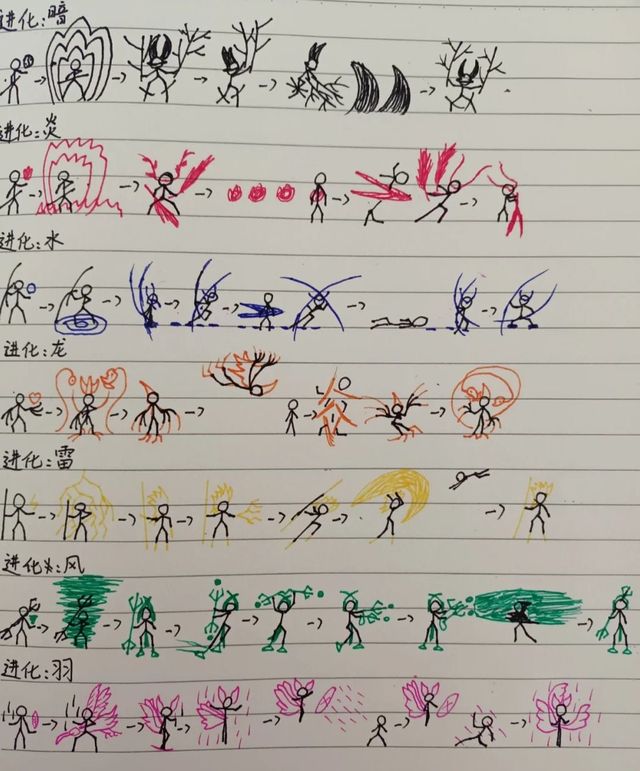 进化:暗
进化:炎
进化:水
进化:龙
进化:雷
进化:风
进化:羽